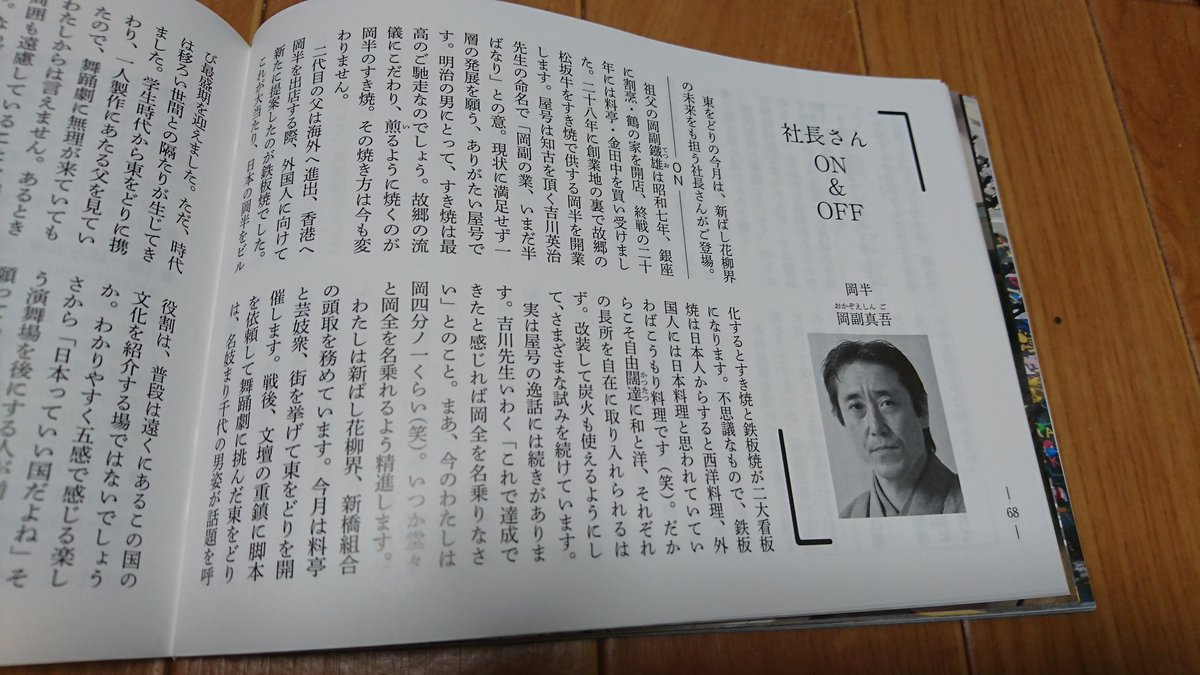 社長さん
ON
&
OFF
岡半
おかぞえしんご
岡副真吾
― 68 ―
東をどりの今月は、新ばし花柳界
の未来をも担う社長さんがご登場。
ON
祖父の岡副鐵雄は昭和七年、銀座
てつお
に割烹・鶴の家を開店、終戦の二十
年には料亭・金田中を買い受けまし
た。二十八年に創業地の裏で故郷の
松坂牛をすき焼で供する岡半を開業
します。屋号は知古を頂く吉川英治
先生の命名で「岡副の業、いまだ半
ばなり」との意。現状に満足せず一
層の発展を願う、ありがたい屋号で
す。明治の男にとって、すき焼は最
高のご馳走なのでしょう。故郷の流
儀にこだわり、煎るように焼くのが
い
岡半のすき焼。その焼き方は今も変
わりません。
二代目の父は海外へ進出、香港へ
岡半を出店する際、外国人に向けて
新たに提案したのが鉄板焼でした。
これが大当たり、日本の岡半をビル
化するとすき焼と鉄板焼が二大看板
になります。不思議なもので、鉄板
焼は日本人からすると西洋料理、外
国人には日本料理と思われていてい
わばこうもり料理です(笑)。だか
らこそ自由闊達に和と洋、それぞれ
かったつ
の長所を自在に取り入れられるは
ず。改装して炭火も使えるようにし
て、さまざまな試みを続けています。
実は屋号の逸話には続きがありま
す。吉川先生いわく「これで達成で
きたと感じれば岡全を名乗りなさ
い」とのこと。まあ、今のわたしは
岡四分ノ一くらい(笑)。いつか堂々
と岡全を名乗れるよう精進します。
わたしは新ばし花柳界、新橋組合
の頭取を務めています。今月は料亭
と芸妓衆、街を挙げて東をどりを開
催します。戦後、文壇の重鎮に脚本
を依頼して舞踊劇に挑んだ東をどり
は、名妓まり千代の男姿が話題を呼
び最盛期を迎えました。ただ、時代
は移ろい世間との隔たりが生じてき
ました。学生時代から東をどりに携
わり、一人製作にあたる父を見てい
たので、舞踊劇に無理が来ていても
わたしからは言えません。あるとき
周囲も遠慮していること
役割は、普段は遠くにあるこの国の
文化を紹介する場ではないでしょう
か。わかりやすく五感で感じる楽し
さから「日本っていい国だよね」そ
う演舞場を後にする人が
願っ